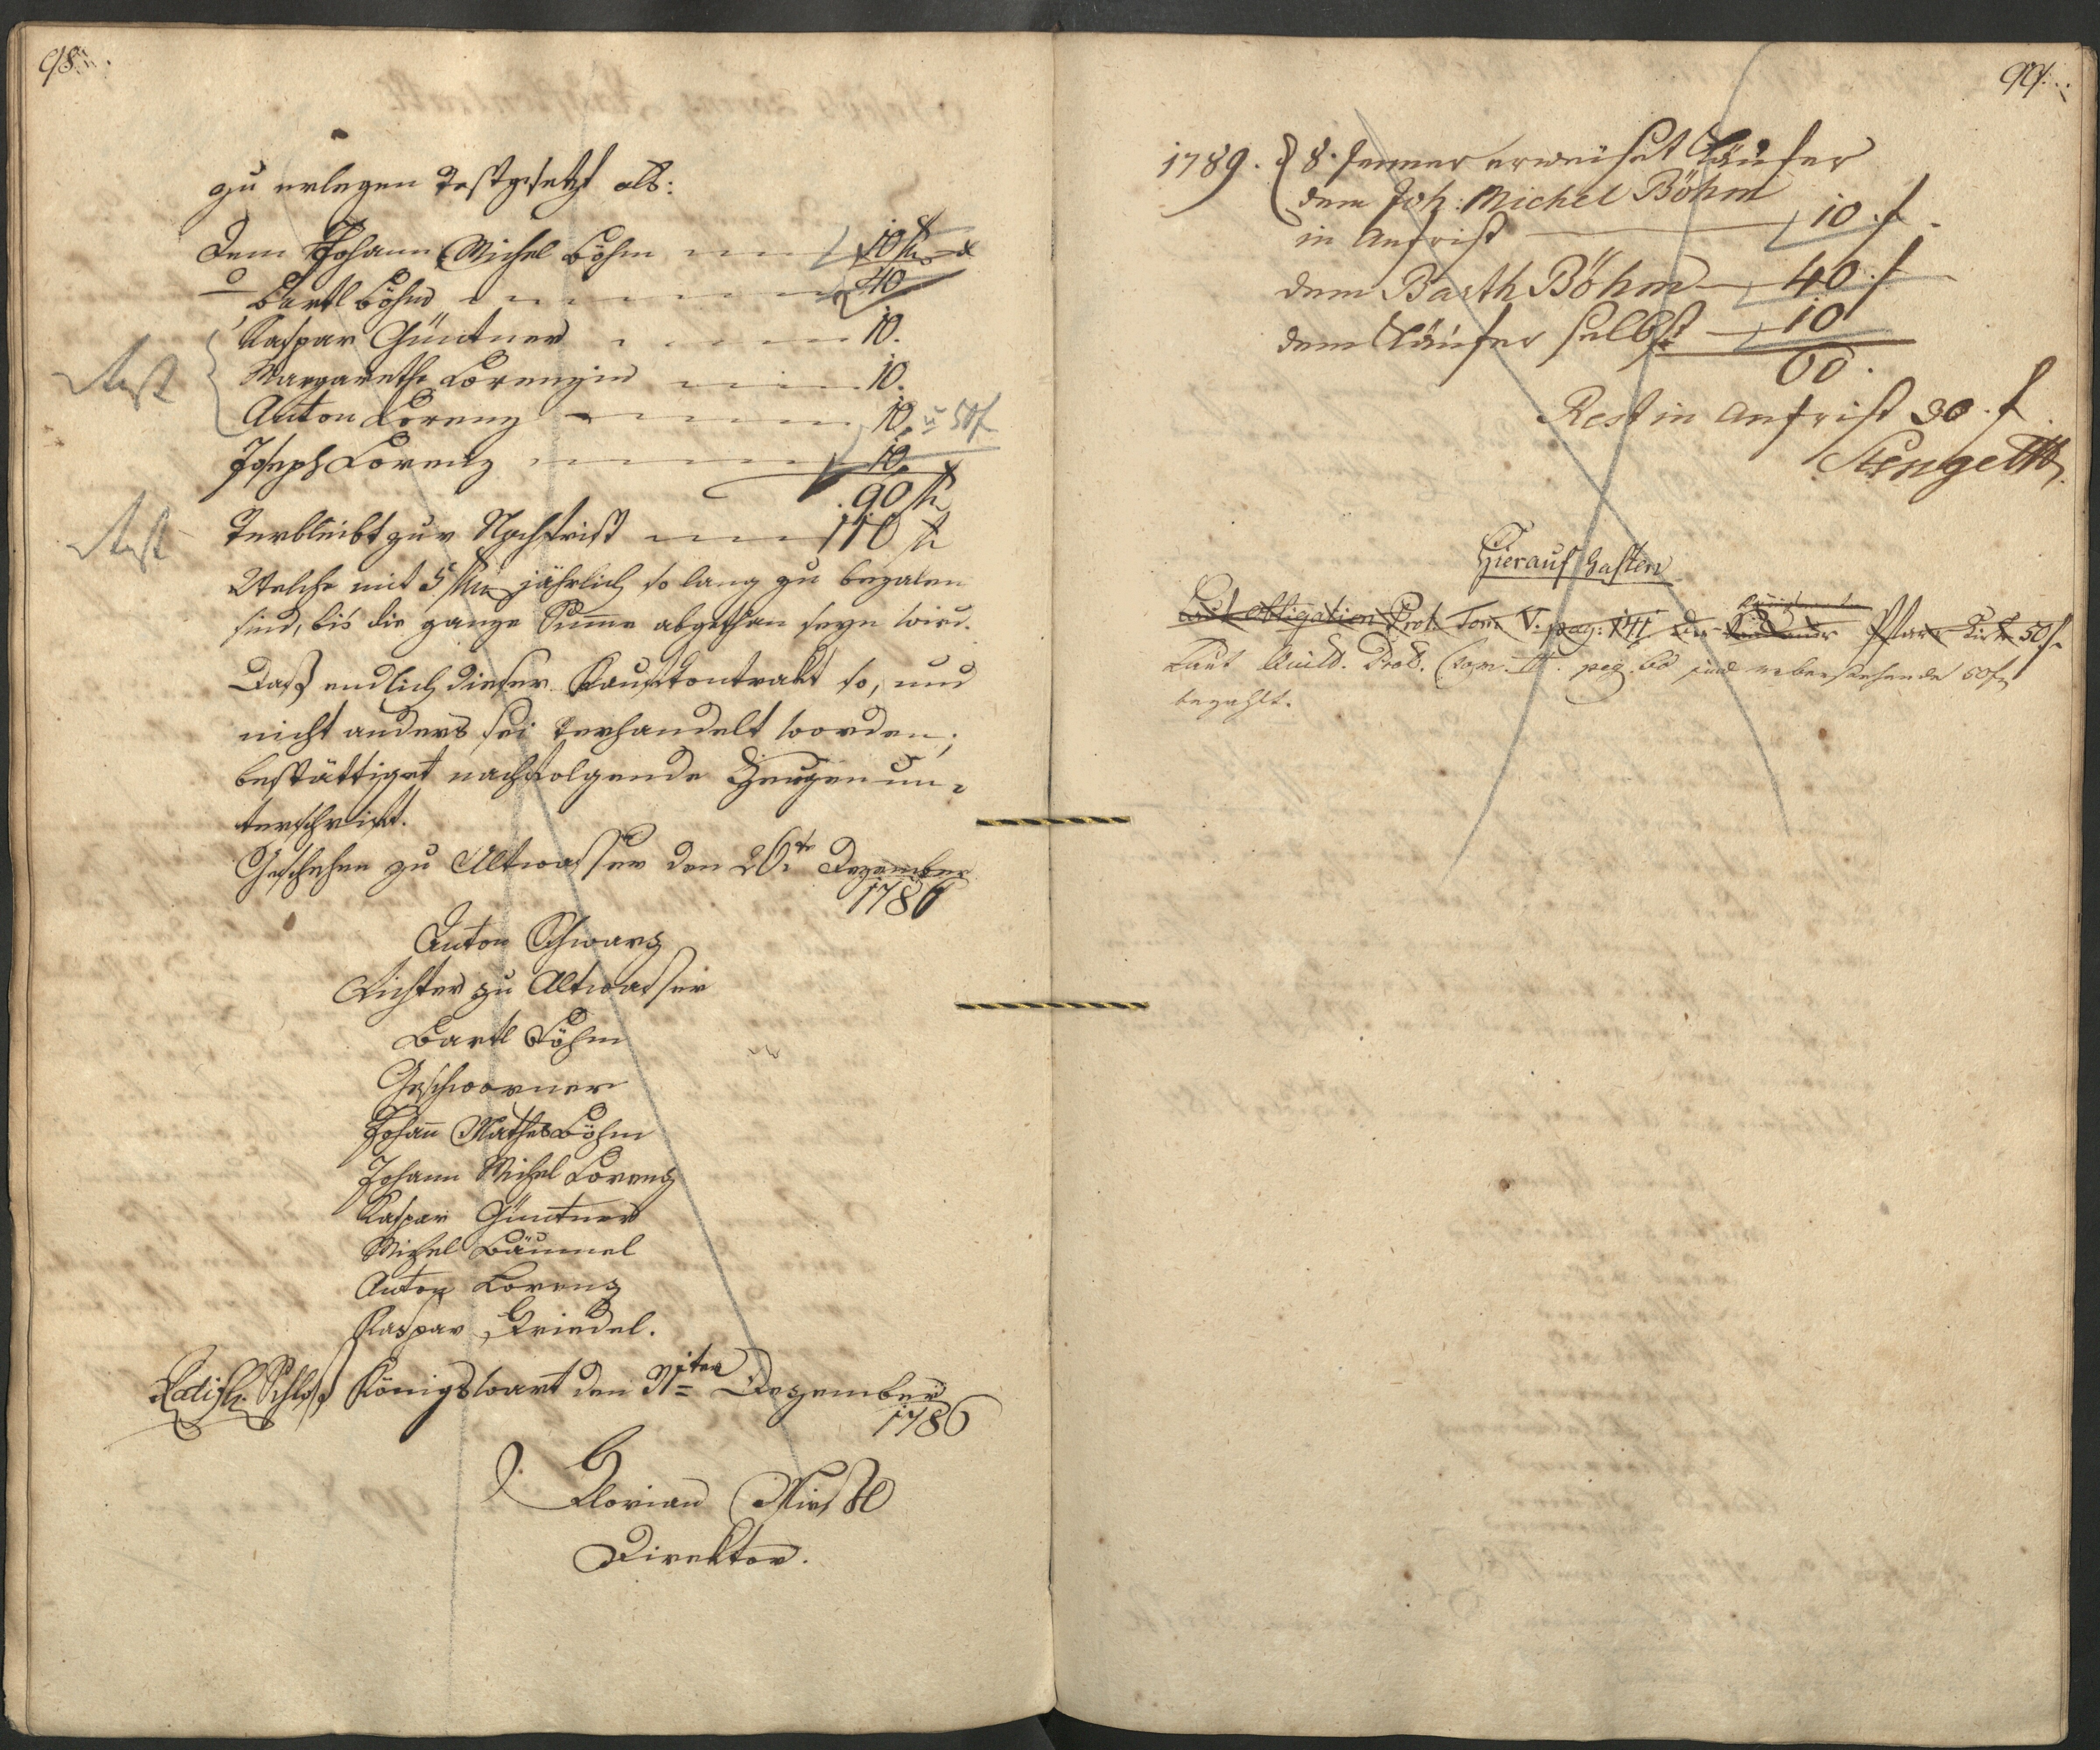 98.
zu erlegen Festgesetzt als:
Dem Johann Michel Böhm 10 f
Bartl Böhm 40
Kaspar Güntner 10.
Margaretha Lorenzin 10.
Rest
Anton Lorenz 10. 50f
Joseph Lorenz 10.
90 f
Rest
Verbleibt zur Nachfrist 110 f
Welche mit 5 f jährlich so lang zu bezalen
sind, bis die ganze Summe abgethan seyn wird.
Daß endlich dieser Kaufkontrakt so, und
nicht anders sei verhandelt worden,
bestättiget nachfolgende Zeugen un-
terschrift.
Geschehen zu Altwasser den 26te Dezember
1786
Anton Schwarz
Richter zu Altwasser
Bartl Böhm
Geschworner
Johann Mathes Böhm
Johann Michel Lorenz
Kaspar Güntner
Michel Bäumel
Anton Lorenz
Kaspar Friedel.
Ratifi. Schloß Königswart den 31ten Dezember
1786
Florian
Direktor.
99.
1789. 8. Jenner erweiset Käufer
dem Joh: Michel Böhm
in Anfrist 10 f
dem Barth Böhm 40. f
dem Käufer selbst 10
60.
Rest in Anfrist 30. f
Stengel
Hierauf haften
Laut Obligation Prot. Tom. V. pag: 141 Pfarr Kirch 50 f
Laut Quitt. Prot. Tom. II. pag. 60 sind nebenstehende 50f
bezahlt.